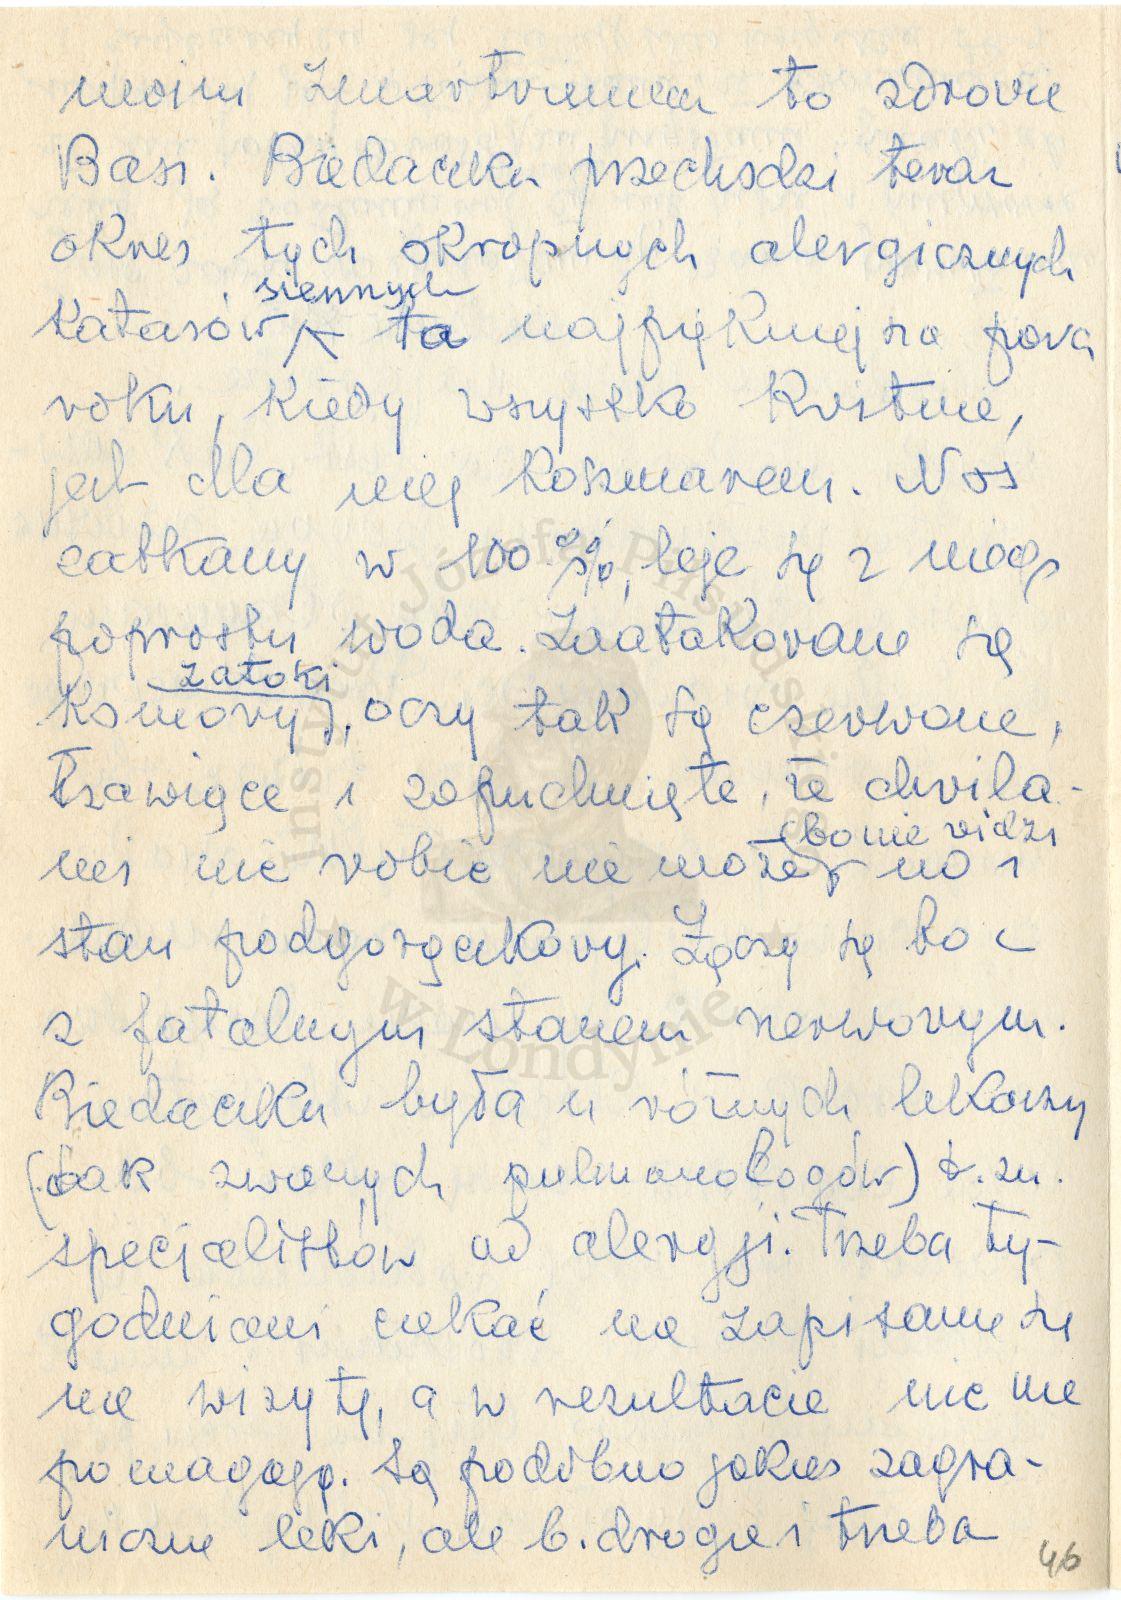 moim zmartwieniem to zdrowie
Basi. Biedaczka przechodzi teraz
okres tych okropnych alergicznych
siennych
katarów ta najpiękniejsza pora
roku, kiedy wszystko kwitnie,
jest dla niej koszmarem. Nos
zatkany w 100%, leje się z niego
poprostu woda. Zaatakowane są
zatoki
, oczy tak są czerwone,
łzawiące i zapuchnięte, że chwila-
(bo nie widzi
mi nic robić nie może no i
stan podgorączkowy. Łączy się to
z fatalnym stanem nerwowym.
Biedaczka była u różnych lekarzy
(tak zwanych pulmonologów) t.zn.
specjalistów od alergji. Trzeba ty-
godniami czekać na zapisanie się
na wizytę, a w rezultacie nic nie
pomagają. Są podobno jakieś zagra-
niczne leki, ale b. drogie i trzeba
46
Instytut Józefa Piłsudskiego
w Londynie